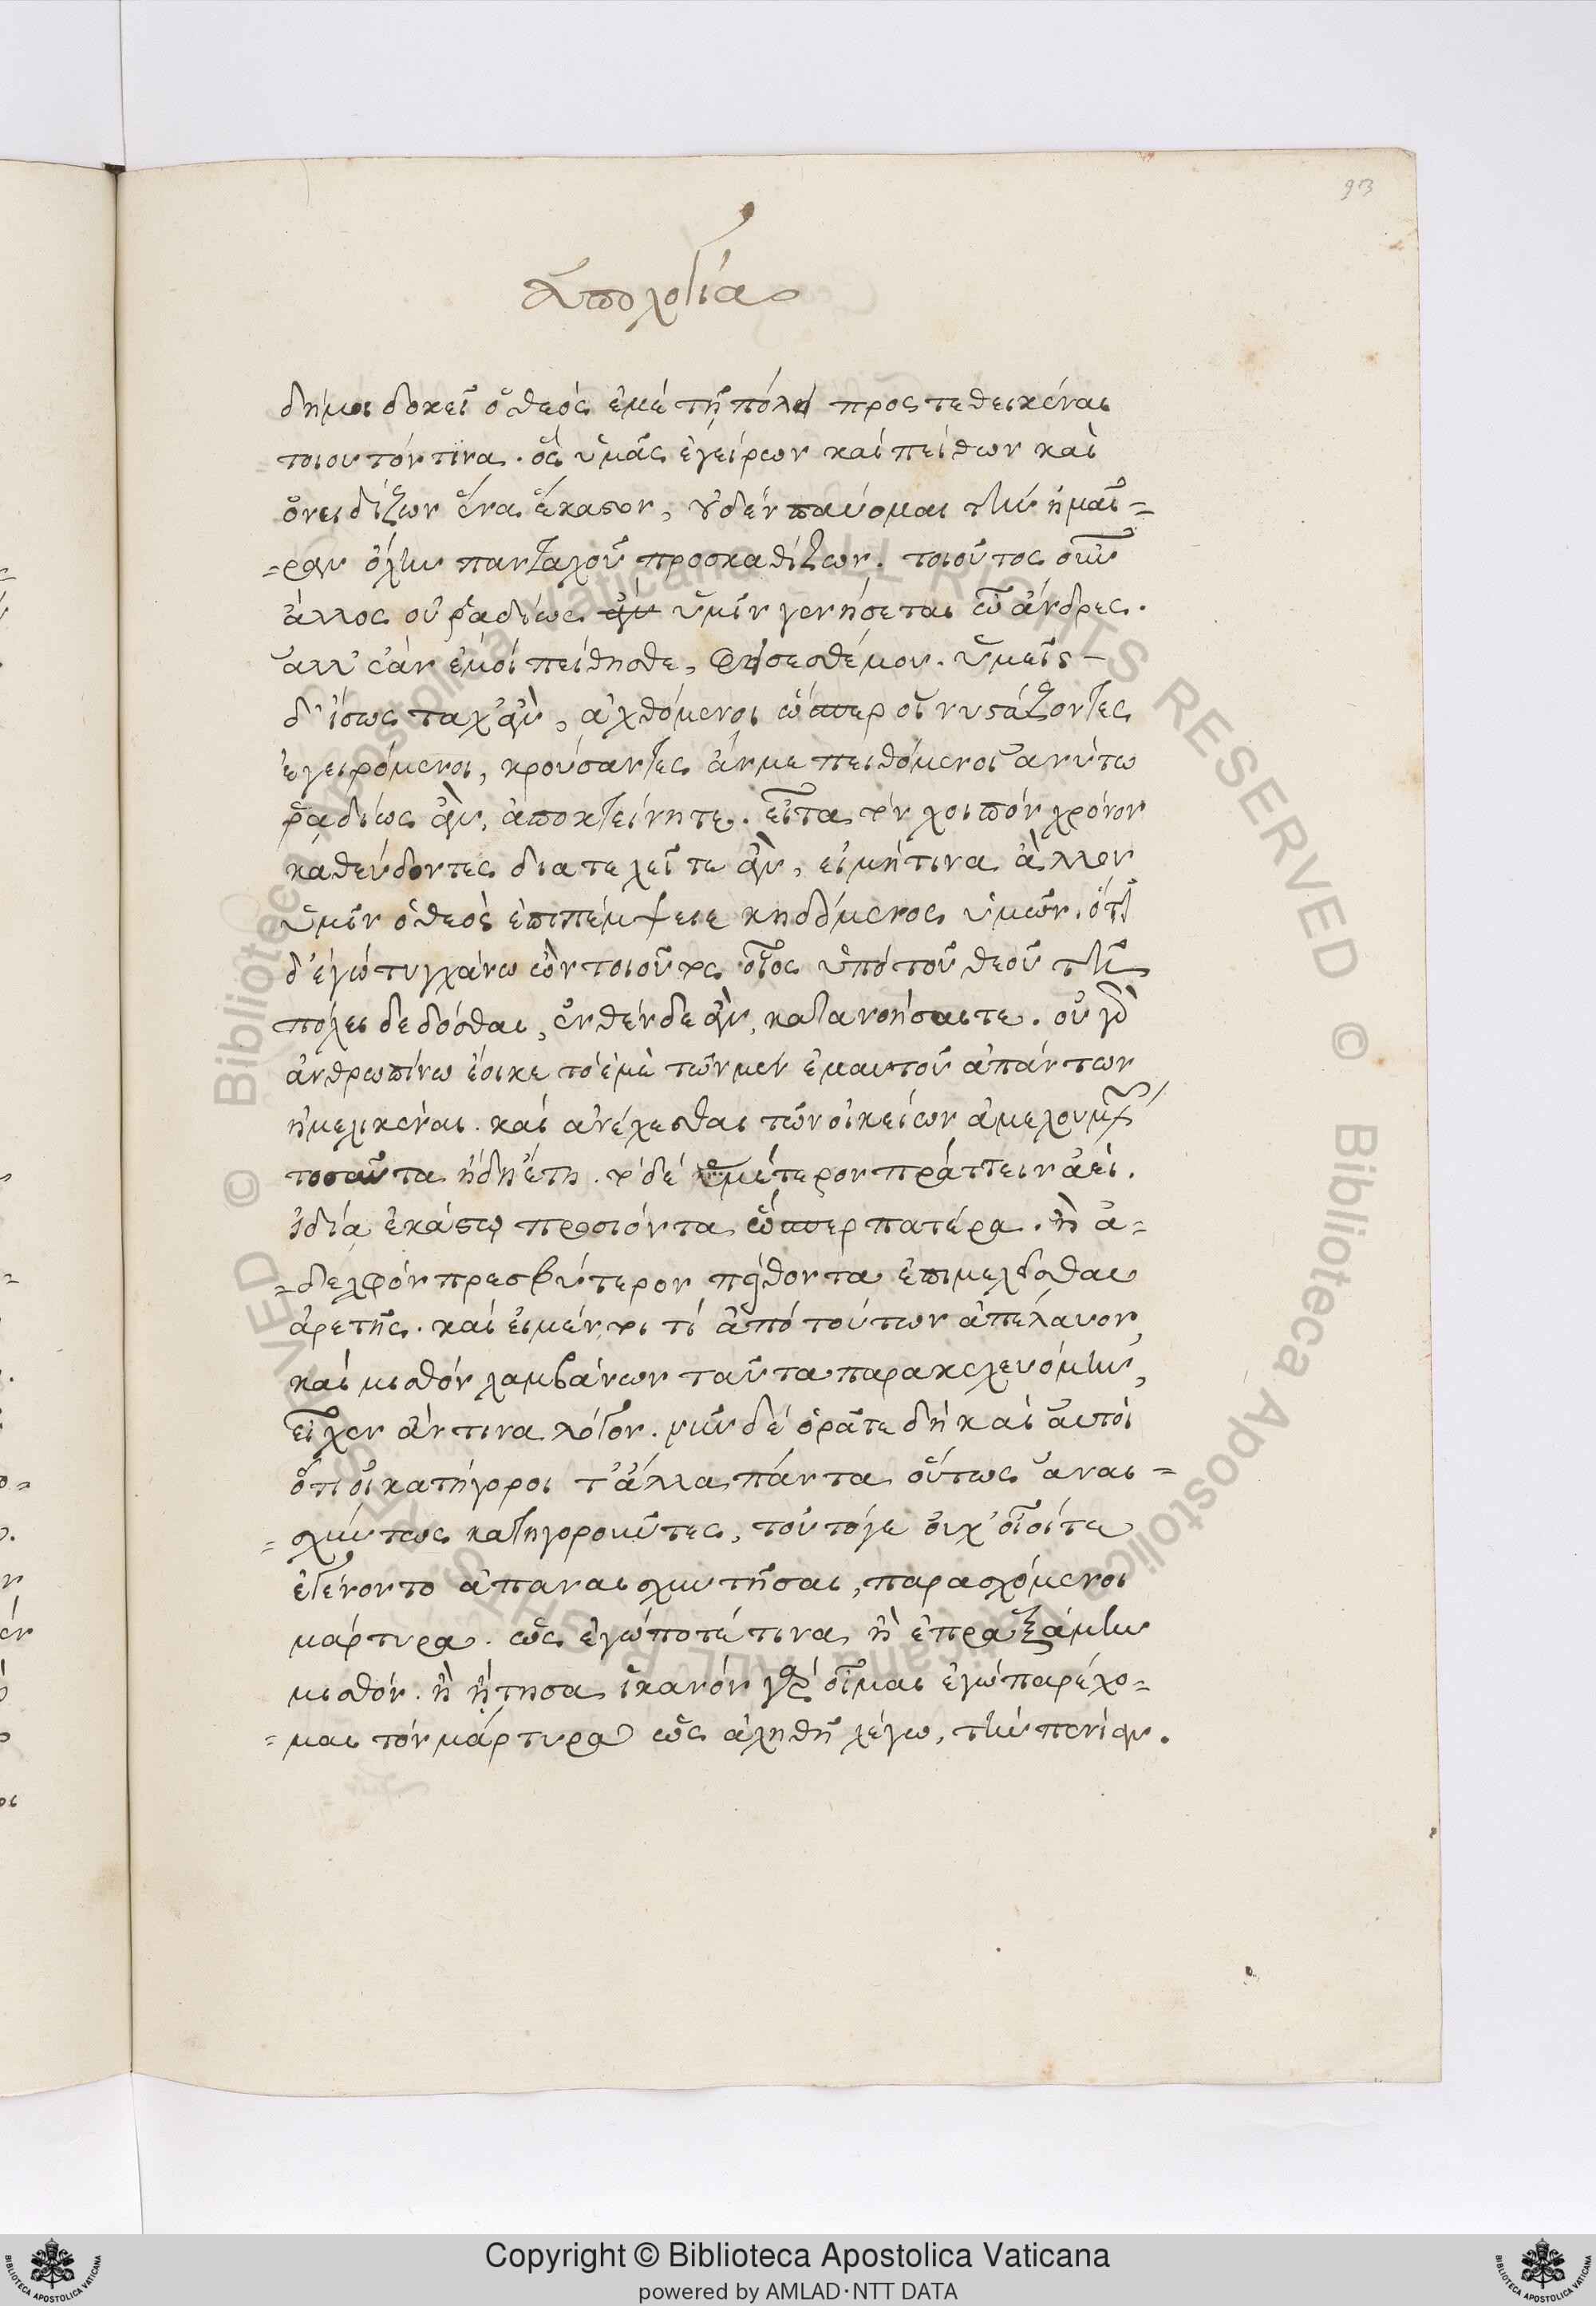 93
Ἀπολογία
δήμοι δοκεῖ ὁ θεός ἐμέ τῇ πόλει προστεθεικέναι
τοιουτόν τινα. ὅς ὑμᾶς ἐγείρων καί πείθων καὶ
ὀνειδίζων ἕνα ἕκαστον, οὐδέν παύομαι τήν ἡμέ=
=ραν ὅλην πανταχοῦ προσκαθίζων. τοιοῦτος οὖν
ἄλλος οὐ ῥαδίως ὑμῖν γενήσεται ὦ ἄνδρες.
ἀλλ' ἐάν ἐμοί πείθησθε, φείσεσθέ μου. ὑμεῖς –
δ' ἴσως ταχ' ἂν, ἀχθόμενοι ὥσπερ οἱ νυστάζοντες
ἐγειρόμενοι, κρούσαντες ἄν με πειθόμενοι ἀνύτω
ῥαδίως ἂν, ἀποκτείνητε. εἶτα τόν λοιπόν χρόνον
καθεύδοντες διατελεῖτε ἂν, εἰμή τινα ἄλλον
ὑμῖν ὁ θεός ἐπιπέμψειε κηδόμενος ὑμῶν. ὅτι
δ' ἐγώ τυγχάνω ὢν τοιοῦτος οἷος ὑπό τοῦ θεοῦ τῇ
πόλει δεδόσθαι, ἐνθένδε ἂν, κατανοήσαιτε. οὐ γὰρ
ἀνθρωπίνω ἔοικε τό ἐμέ τῶν μέν ἐμαυτοῦ ἁπάντων
ἠμεληκέναι. καί ἀνέχεσθαι τῶν οἰκείων ἀμελουμένων
τοσαῦτα ἤδη ἔτη. τό δέ ὑμέτερον πράττειν ἀεί.
ἰδία ἑκάστῳ προσιόντα ὥσπερ πατέρα. ἢ ἀ=
=δελφόν πρεσβύτερον πείθοντα ἐπιμελεῖσθαι
ἀρετῆς. καί εἰ μέν τοι τί ἀπό τούτων ἀπέλαυον,
καί μισθόν λαμβάνων ταῦτα παρακελευόμην,
εἶχεν ἄν τινα λόγον. νῦν δέ ὁρᾶτε δή καί αὐτοί
ὅτι οἱ κατήγοροι τ' ἄλλα πάντα οὕτως ἀναι=
=σχύντως κατηγοροῦντες, τούτό γε οὐχ' οἷοί τε
ἐγένοντο ἀπαναισχυντῆσαι, παρασχόμενοι
μάρτυρα. ὡς ἐγώ ποτέ τινα ἢ ἐπραξάμην
μισθόν. ἢ ᾔτησα ἱκανόν γάρ οἶμαι ἐγώ παρέχο=
=μαι τόν μάρτυρα ὡς ἀληθῆ λέγω, τήν πενίαν.
Copyright © Biblioteca Apostolica Vaticana
powered by AMLAD·NTT DATA